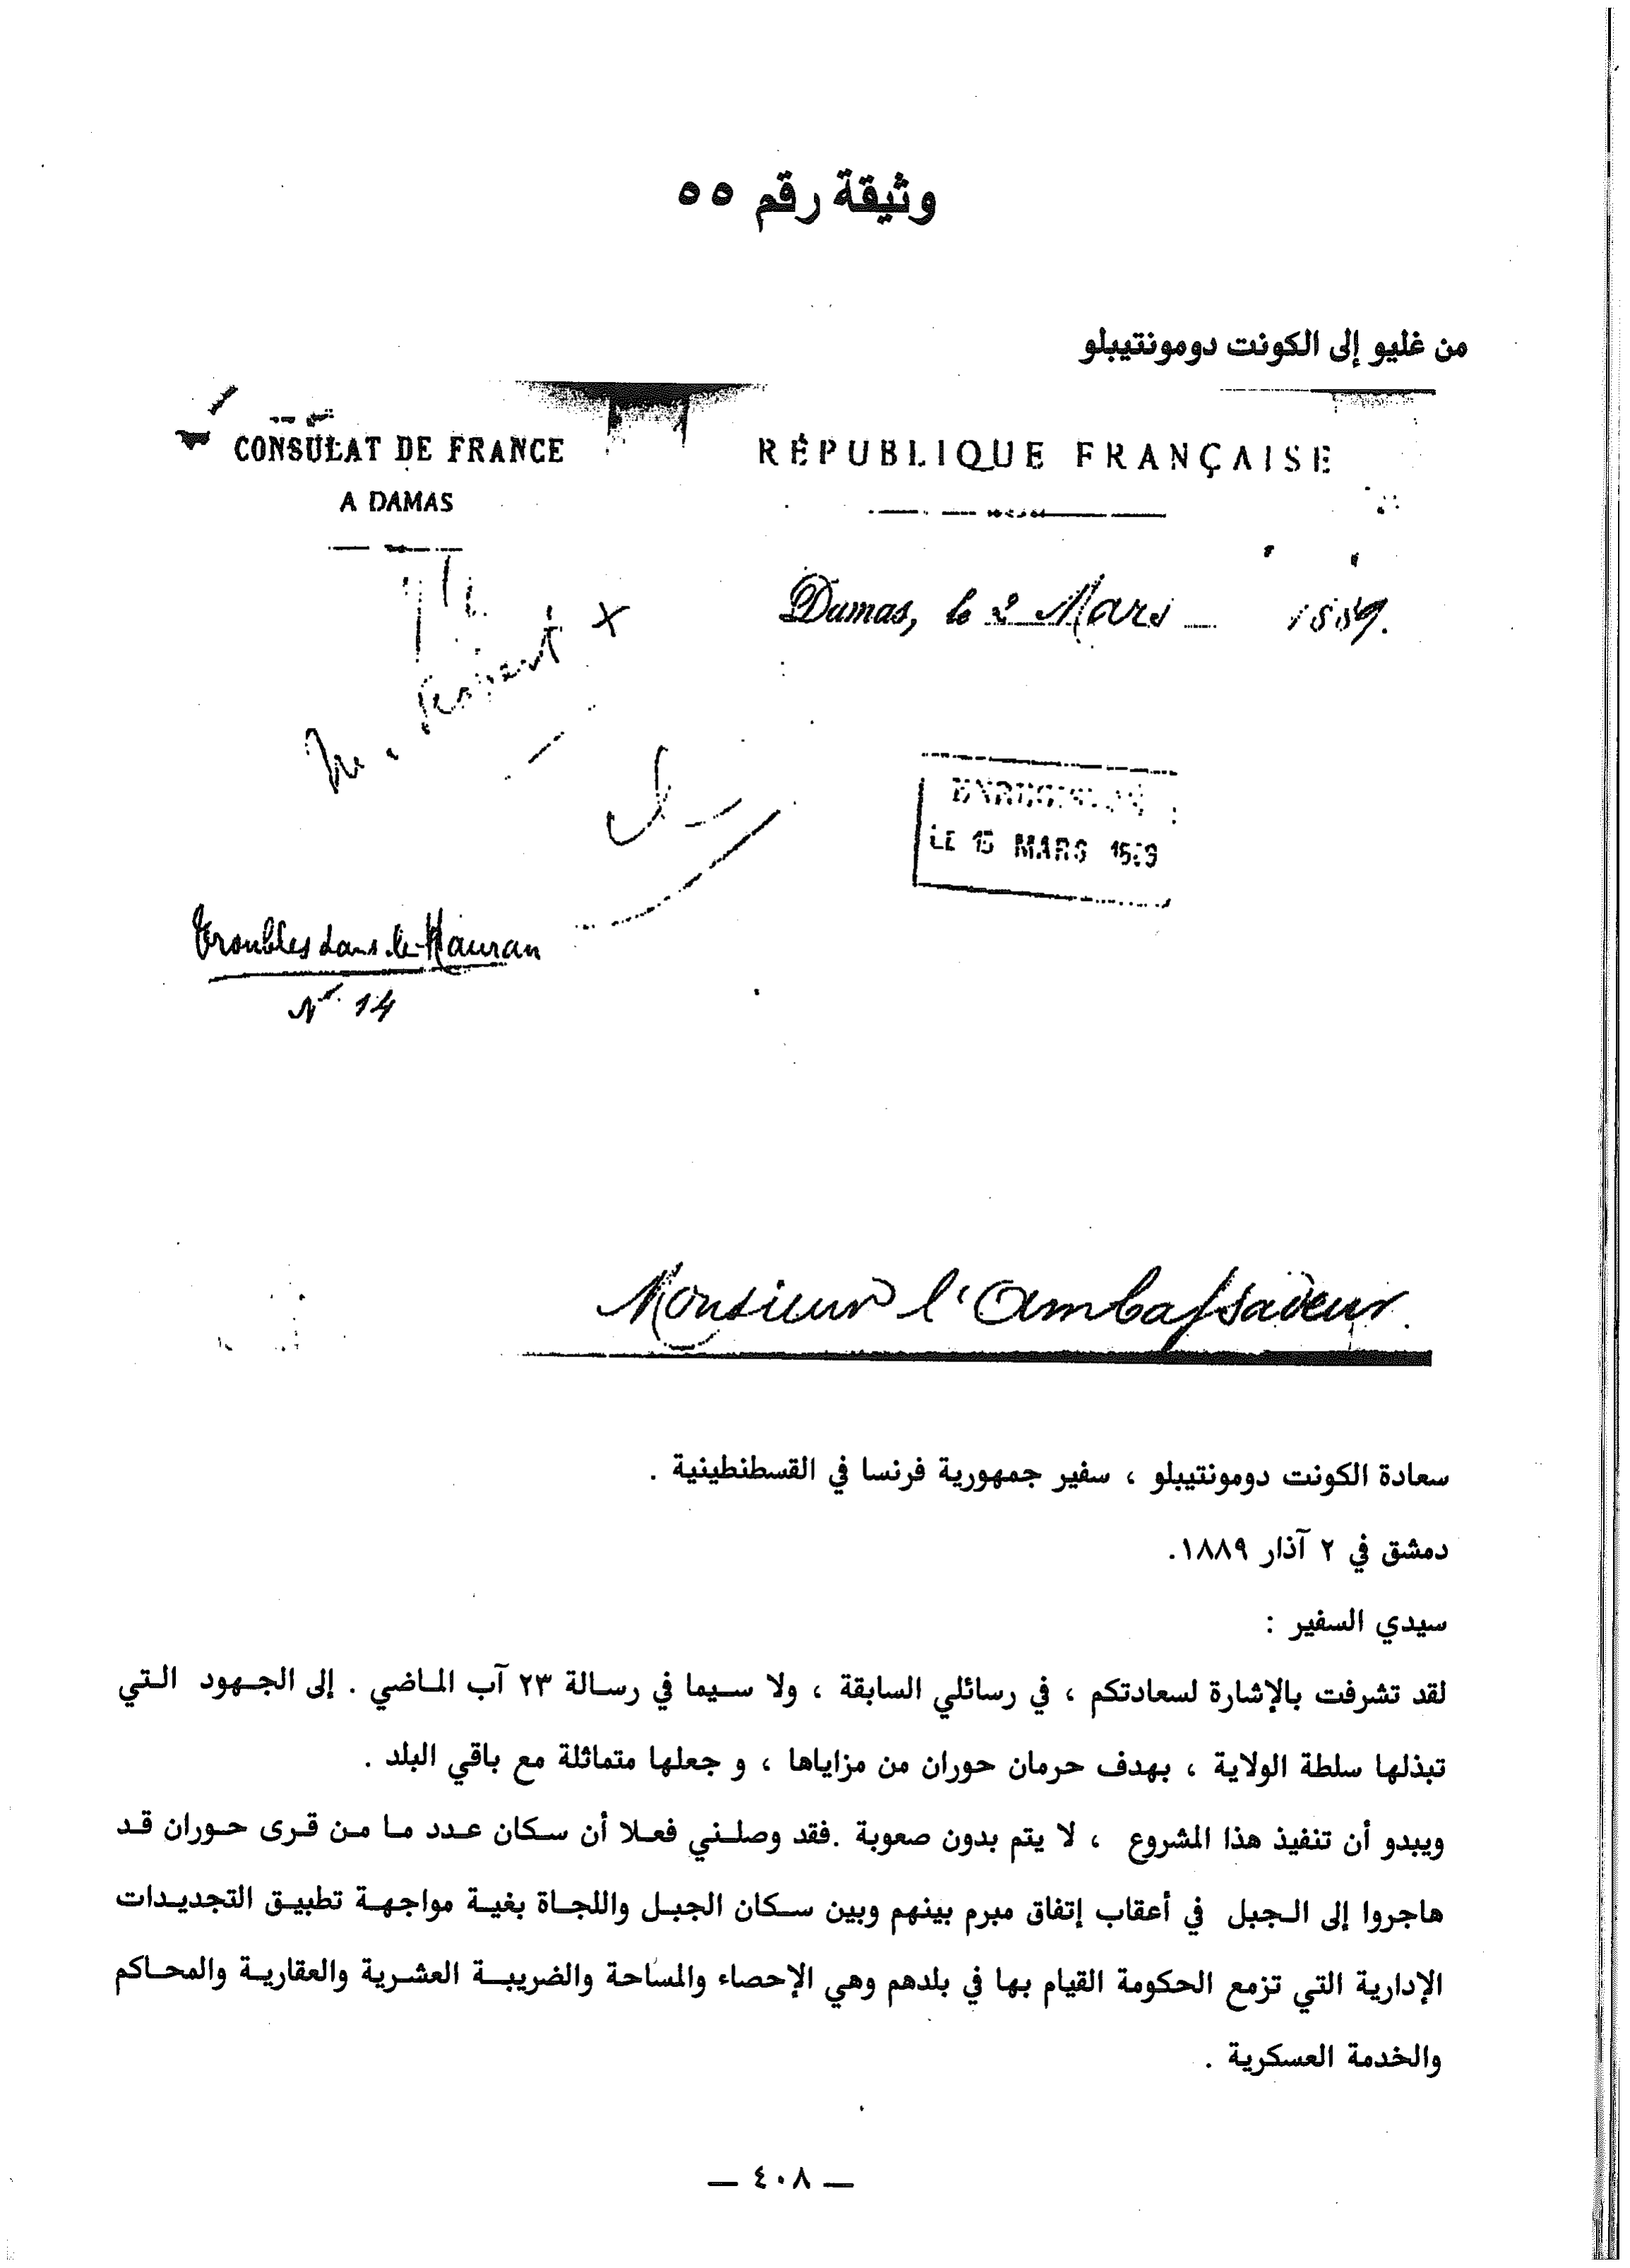 وثيقة رقم ٥٥
من غليو إلى الكونت دومونتيبلو
CONSULAT DE FRANCE
A DAMAS
RÉPUBLIQUE FRANÇAISE
Damas, le 2 Mars 1889.
LE 15 MARS
Troubles dans le Hauran
N° 14
Monsieur l'Ambassadeur.
سعادة الكونت دومونتيبلو ، سفير جمهورية فرنسا في القسطنطينية .
دمشق في ٢ آذار ١٨٨٩.
سيدي السفير :
لقد تشرفت بالإشارة لسعادتكم ، في رسائلي السابقة ، ولا سيما في رسالة ٢٣ آب الماضي . إلى الجهود التي
تبذلها سلطة الولاية ، بهدف حرمان حوران من مزاياها ، و جعلها متماثلة مع باقي البلد .
ويبدو أن تنفيذ هذا المشروع ، لا يتم بدون صعوبة .فقد وصلني فعلا أن سكان عدد ما من قرى حوران قد
هاجروا إلى الجبل في أعقاب إتفاق مبرم بينهم وبين سكان الجبل واللجاة بغية مواجهة تطبيق التجديدات
الإدارية التي تزمع الحكومة القيام بها في بلدهم وهي الإحصاء والمساحة والضريبة العشرية والعقارية والمحاكم
والخدمة العسكرية .
— ٤٠٨ —